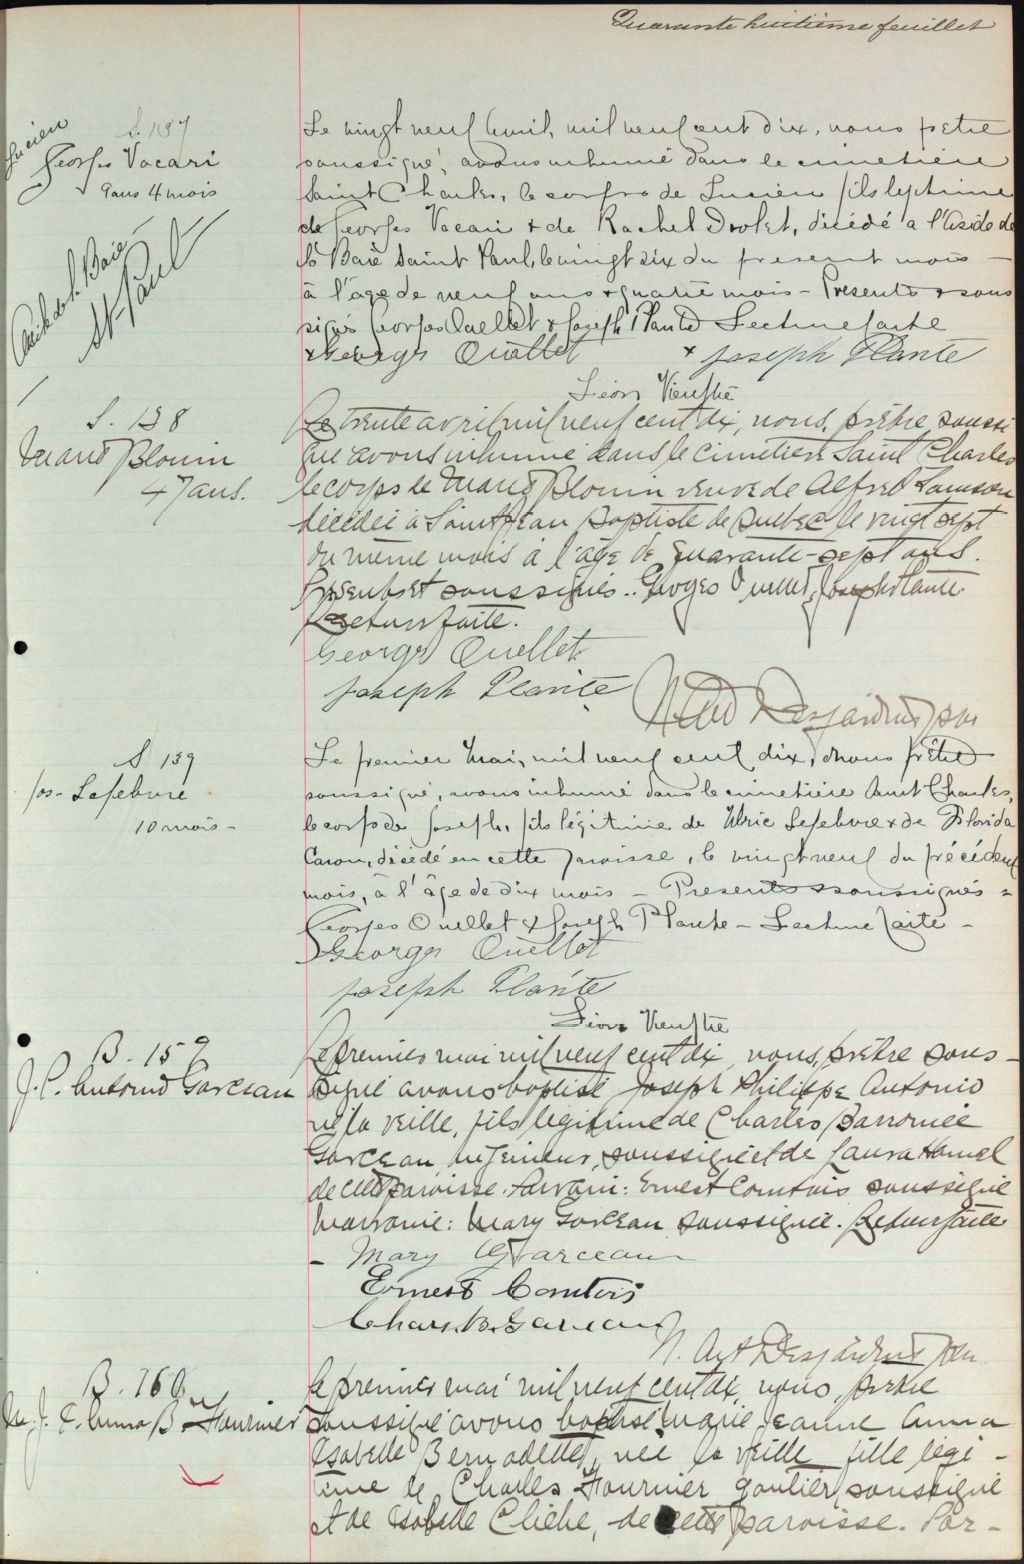 Quarante huitième feuillet
S. 137
Lucien
Georges Vocari
9 ans 4 mois
Asile de la Baie
St-Paul
Le vingt neuf Avril, mil neuf cent dix, nous prêtre
soussigné, avons inhumé dans le cimetière
Saint Charles, le corps de Lucien fils légitime
de Georges Vocari & de Rachel Drolet, décédé a l'Asile de
la Baie Saint Paul, le vingt six du present mois -
à l'age de neuf ans & quatre mois - Presents & sous
signés Georges Ouellet & Joseph Plante Lecture faite
x George Ouellet x Joseph Plante
Léon Vien ptre
S. 138
Marie Blouin
47 ans.
Le trente avril mil neuf cent dix, nous, prêtre soussi
gné avons inhumé dans le cimetière Saint Charles
le corps de Marie Blouin veuve de Alfred Samson
décédée à Saint Jean Baptiste de Québec le vingt sept
du même mois à l'âge de quarante-sept ans.
Présents et soussignés.. Georges Ouellet, Joseph Plante
Lecture faite.
George Ouellet
Joseph Plante
Desjardins ptre
S 139
Jos- Lefebvre
10 mois -
Le premier Mai, mil neuf cent dix, nous prêtre
soussigné, avons inhumé dans le cimetière Saint Charles,
le corps de Joseph, fils légitime de Ulric Lefebvre & de Florida
Caron, décédé en cette paroisse, le vingt neuf du précédent
mois, à l'âge de dix mois - Presents & soussignés =
Georges Ouellet & Joseph Plante - Lecture faite -
George Ouellet
Joseph Plante
Léon Vien ptre
B. 159
J. P. Antonio Garceau
Le premier mai mil neuf cent dix, nous, prêtre sous-
signé avons baptisé Joseph Philippe Antonio
né la veille, fils légitime de Charles Barromée
Garceau, ingénieur, soussigné et de Laura Hamel
de cette paroisse. Parrain: Ernest Comtois soussigné
Marraine: Mary Garceau soussignée. Lecture faite
- Mary Garceau
Ernest Comtois
Chas. B. Garceau
N. Art Desjardins ptre.
B. 160
M. J. Anna B Fournier
Le premier mai mil neuf cent dix, nous, prêtre
soussigné avons baptisé Marie Jeanne Anna
Isabelle Bernadette, née la veille fille légi-
time de Charles Fournier gantier soussigné
et de Isabelle Cliche, de cette paroisse. Par-